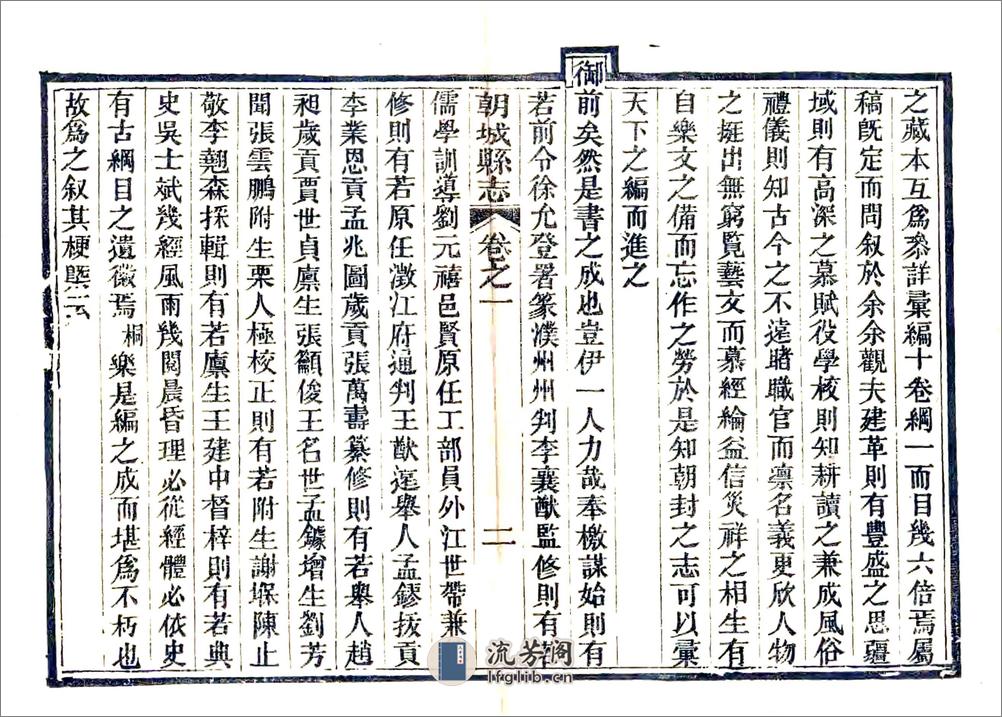 之藏本互爲叅詳彙編十卷綱一而目幾六倍焉屬
稿旣定而問叙於余余觀夫建革則有豐盛之思疆
域則有高深之慕賦役學校則知耕讀之兼成風俗
禮儀則知古今之不遠睹職官而凛名義更欣人物
之挺出無窮覧藝文而慕經綸益信災祥之相生有
自樂文之備而忘作之勞於是知朝封之志可以彙
天下之編而進之
御前矣然是書之成也豈伊一人力哉奉檄謀始則有
若前令徐允登署篆濮州州判李襄猷監修則有若
朝城縣志 卷之一 二
儒學訓導劉元禧邑賢原任工部員外江世帶兼
修則有若原任澂江府通判王猷遠舉人孟鏐拔貢
李業恩貢孟兆圖歲貢張萬壽纂修則有若舉人趙
昶歲貢賈世貞廪生張顲俊王名世孟鐻增生劉芳
聞張雲鵬附生栗人極校正則有若附生謝堢陳止
敬李翹森採輯則有若廪生王建中督梓則有若典
史吳士斌幾經風雨幾閱晨昏理必從經體必依史
有古綱目之遺徽焉桐樂是編之成而堪爲不朽也
故爲之叙其梗槩云
流芳阁
lfglib.cn